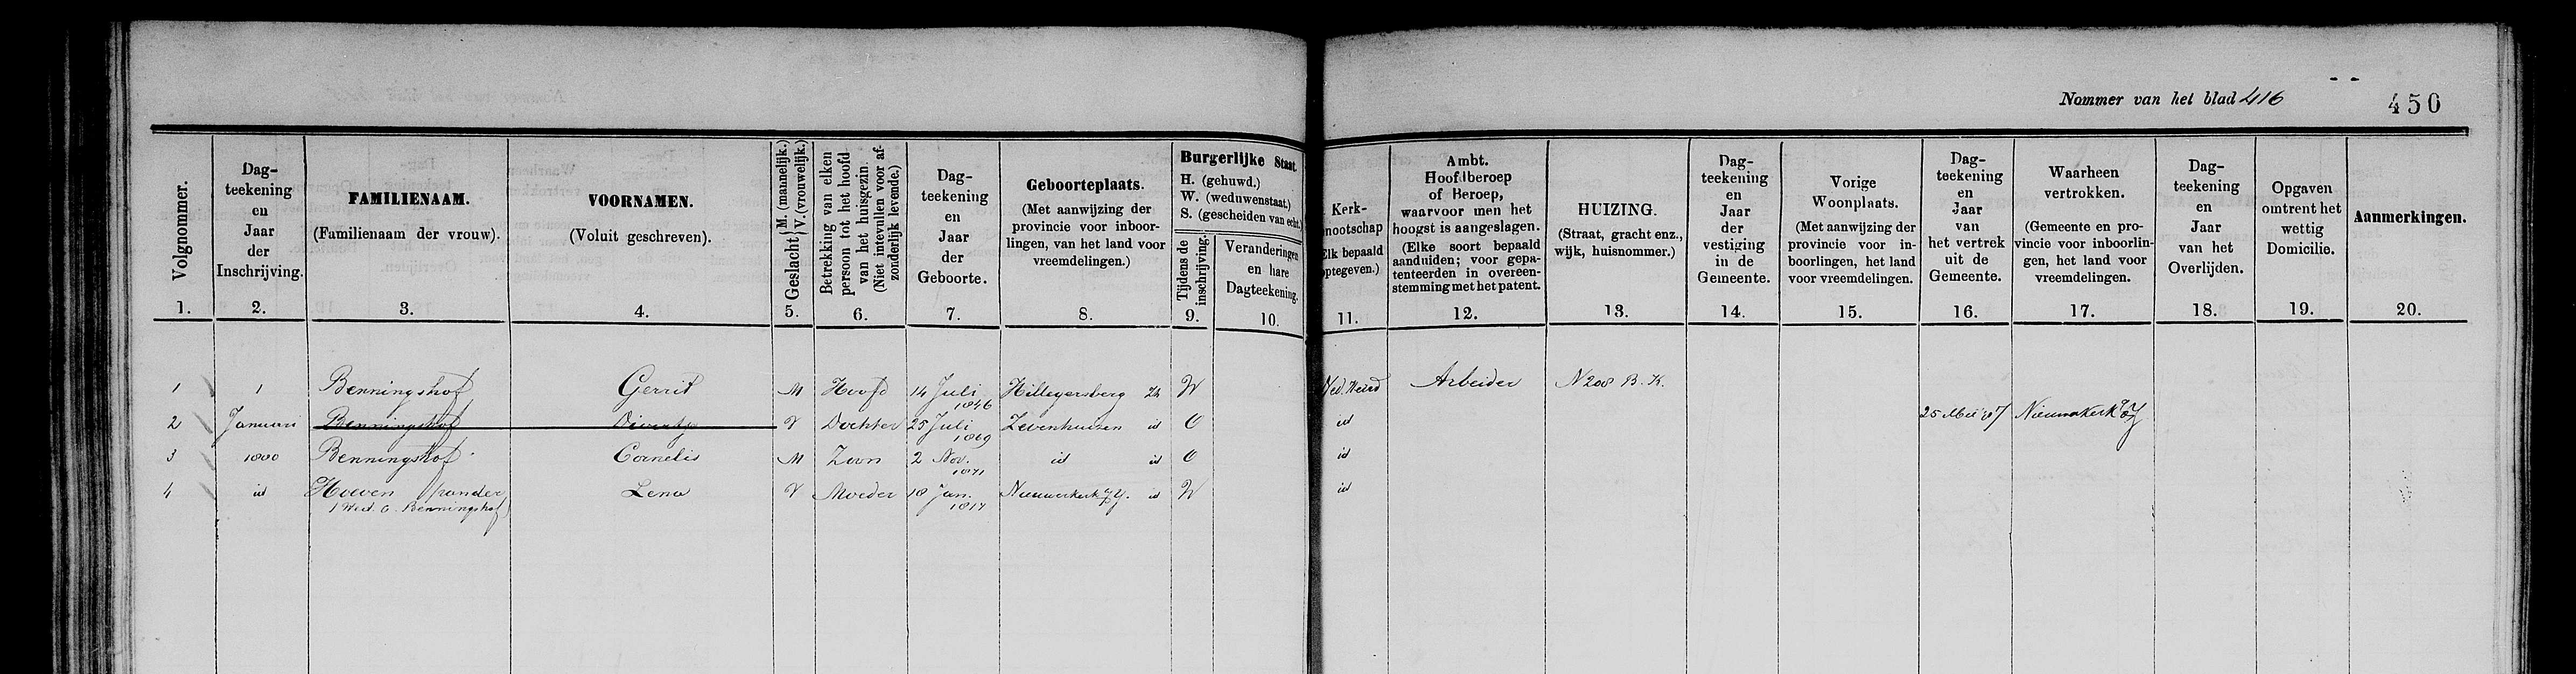 Nommer van het blad 416
450
Volgnommer.
1.
Dag-
teekening
en
Jaar
der
Inschrijving.
2.
FAMILIENAAM.
(Familienaam der vrouw).
3.
VOORNAMEN.
(Voluit geschreven).
4.
Geslacht { M. (mannelijk.)
V. (vrouwelijk.)
5.
Betrekking van elken
persoon tot het hoofd
van het huisgezin
(Niet intevullen voor af-
zonderlijk levende.)
6.
Dag-
teekening
en
Jaar
der
Geboorte.
7.
Geboorteplaats.
(Met aanwijzing der
provincie voor inboor-
lingen, van het land voor
vreemdelingen.)
8.
Burgerlijke Staat.
H. (gehuwd.)
W. (weduwenstaat.)
S. (gescheiden van echt.)
Tijdens de
inschrijving.
9.
Veranderingen
en hare
Dagteekening.
10.
Kerk-
nootschap
Elk bepaald
optegeven.)
11.
Ambt.
Hoofdberoep
of Beroep,
waarvoor men het
hoogst is aangeslagen.
(Elke soort bepaald
aanduiden; voor gepa-
tenteerden in overeen-
stemming met het patent.
12.
HUIZING.
(Straat, gracht enz.,
wijk, huisnommer.)
13.
Dag-
teekening
en
Jaar
der
vestiging
in de
Gemeente.
14.
Vorige
Woonplaats.
(Met aanwijzing der
provincie voor in-
boorlingen, het land
voor vreemdelingen.
15.
Dag-
teekening
en
Jaar
van
het vertrek
uit de
Gemeente.
16.
Waarheen
vertrokken.
(Gemeente en pro-
vincie voor inboorlin-
gen, het land voor
vreemdelingen.
17.
Dag-
teekening
en
Jaar
van het
Overlijden.
18.
Opgaven
omtrent het
wettig
Domicilie.
19.
Aanmerkingen.
20.
1 1 Benningshof Gerrit M Hoofd 14 Juli 1846 Hillegersberg Zh W Ned. Herv. Arbeider N 208 B. K.
2 Januari Benningshof Divertje V Dochter 25 Juli 1869 Zevenhuizen id O id 25 Mei 87 Nieuwerkerk a/d Y
3 1880 Benningshof Cornelis M Zoon 2 Nov. 1871 id id O id
4 id Hoeven (van der Lena V Moeder 18 Jan. 1817 Nieuwerkerk a/d Y. id W id
(Wed. C. Benningshof)